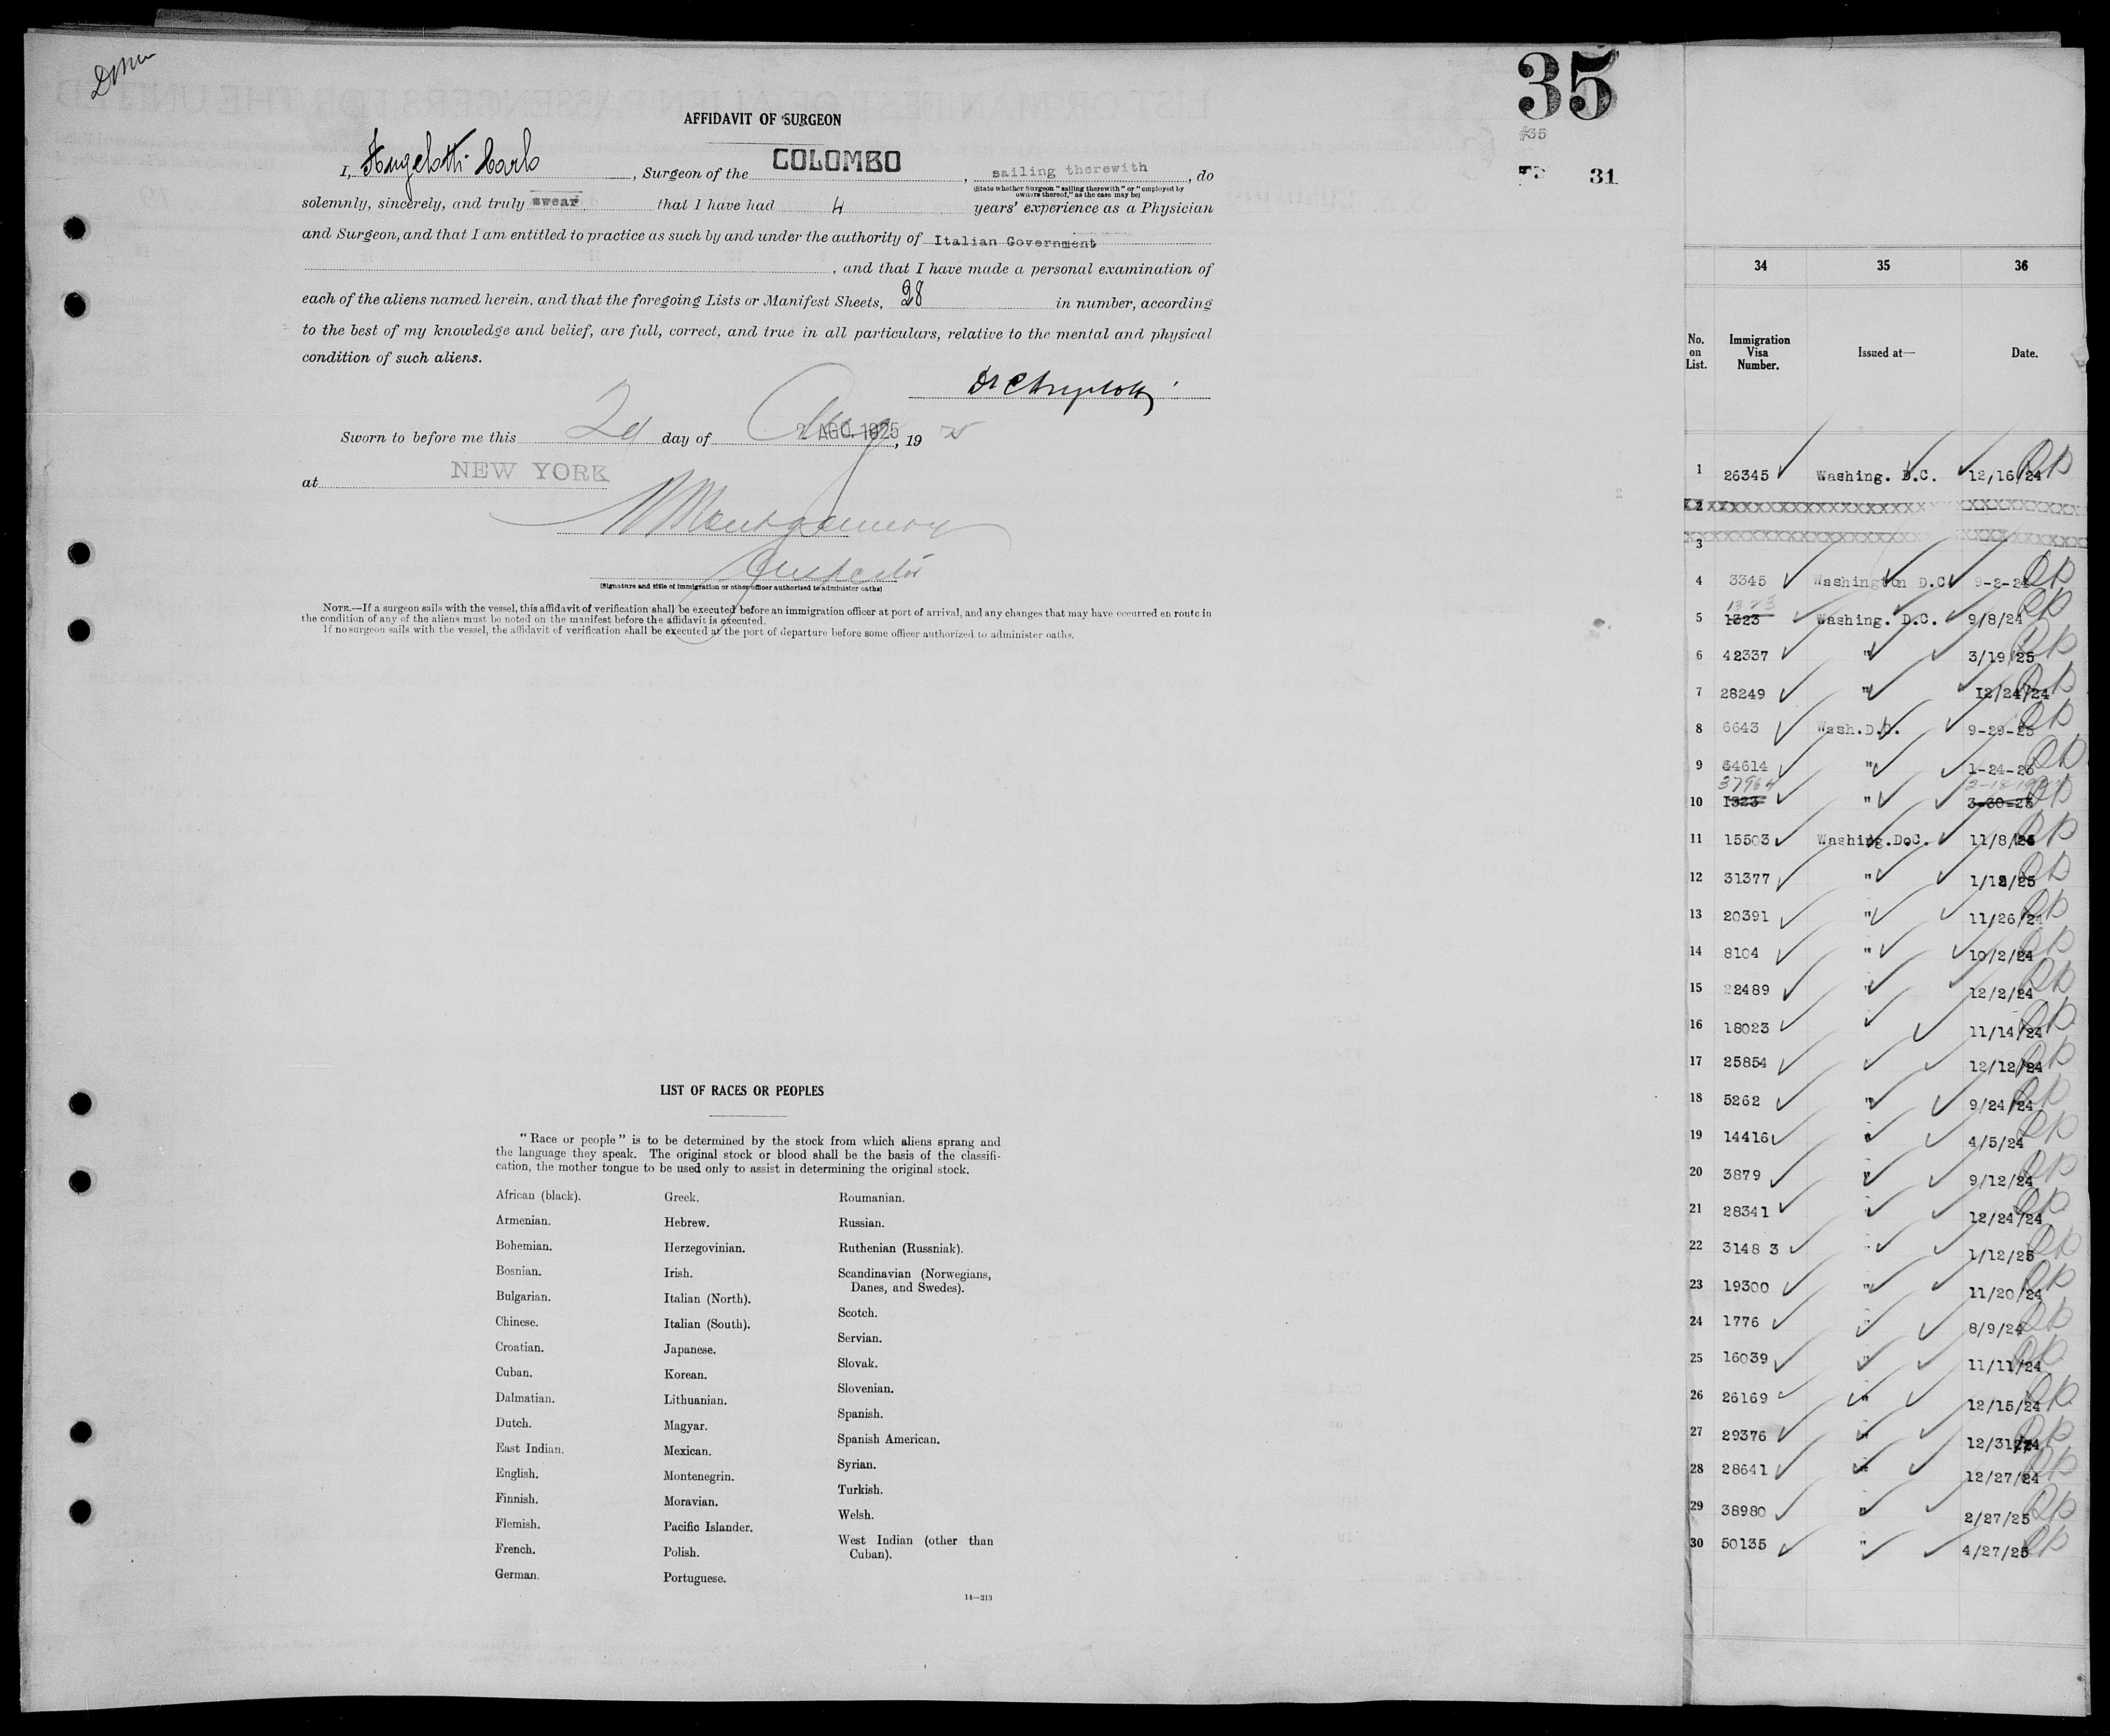 35
#35
31
AFFIDAVIT OF SURGEON
I, Angelotti Carlo, Surgeon of the COLOMBO, sailing therewith, do
(State whether Surgeon "sailing therewith" or "employed by
owners thereof," as the case may be)
solemnly, sincerely, and truly swear that I have had 4 years' experience as a Physician
and Surgeon, and that I am entitled to practice as such by and under the authority of Italian Government
, and that I have made a personal examination of
each of the aliens named herein, and that the foregoing Lists or Manifest Sheets, 28 in number, according
to the best of my knowledge and belief, are full, correct, and true in all particulars, relative to the mental and physical
condition of such aliens.
Sworn to before me this 2d day of Aug 2 AGO. 1925, 19 25
at NEW YORK
Montgomery
Inspector
(Signature and title of immigration or other officer authorized to administer oaths)
NOTE.—If a surgeon sails with the vessel, this affidavit of verification shall be executed before an immigration officer at port of arrival, and any changes that may have occurred en route in
the condition of any of the aliens must be noted on the manifest before the affidavit is executed.
If no surgeon sails with the vessel, the affidavit of verification shall be executed at the port of departure before some officer authorized to administer oaths.
LIST OF RACES OR PEOPLES
"Race or people" is to be determined by the stock from which aliens sprang and
the language they speak. The original stock or blood shall be the basis of the classifi-
cation, the mother tongue to be used only to assist in determining the original stock.
African (black).
Armenian.
Bohemian.
Bosnian.
Bulgarian.
Chinese.
Croatian.
Cuban.
Dalmatian.
Dutch.
East Indian.
English.
Finnish.
Flemish.
French.
German.
Greek.
Hebrew.
Herzegovinian.
Irish.
Italian (North).
Italian (South).
Japanese.
Korean.
Lithuanian.
Magyar.
Mexican.
Montenegrin.
Moravian.
Pacific Islander.
Polish.
Portuguese.
Roumanian.
Russian.
Ruthenian (Russniak).
Scandinavian (Norwegians,
Danes, and Swedes).
Scotch.
Servian.
Slovak.
Slovenian.
Spanish.
Spanish American.
Syrian.
Turkish.
Welsh.
West Indian (other than
Cuban).
14—213
34 35 36
No. on List. Immigration Visa Number. Issued at— Date.
1 26345 Washing. D.C. 12/16/24
2 XXXXXXXXXXXXXXXXXXXXXXX
3 XXXXXXXXXXXXXXXXXXXXXXX
4 3345 Washington D.C. 9-2-24
1373
5 1323 Washing. D.C. 9/8/24
6 42337 " 3/19/25
7 28249 " 12/24/24
8 6643 Wash.D.C. 9-29-25
9 34614 " 1-24-25
37964
10 1323 " 3-30-25
11 15503 Washing.D.C. 11/8/25
12 31377 " 1/12/25
13 20391 " 11/26/24
14 8104 " 10/2/24
15 22489 " 12/2/24
16 18023 " 11/14/24
17 25854 " 12/12/24
18 5262 " 9/24/24
19 14416 " 4/5/24
20 3879 " 9/12/24
21 28341 " 12/24/24
22 3148 3 " 1/12/25
23 19300 " 11/20/24
24 1776 " 8/9/24
25 16039 " 11/11/24
26 26169 " 12/15/24
27 29376 " 12/31/24
28 28641 " 12/27/24
29 38980 " 2/27/25
30 50135 " 4/27/25